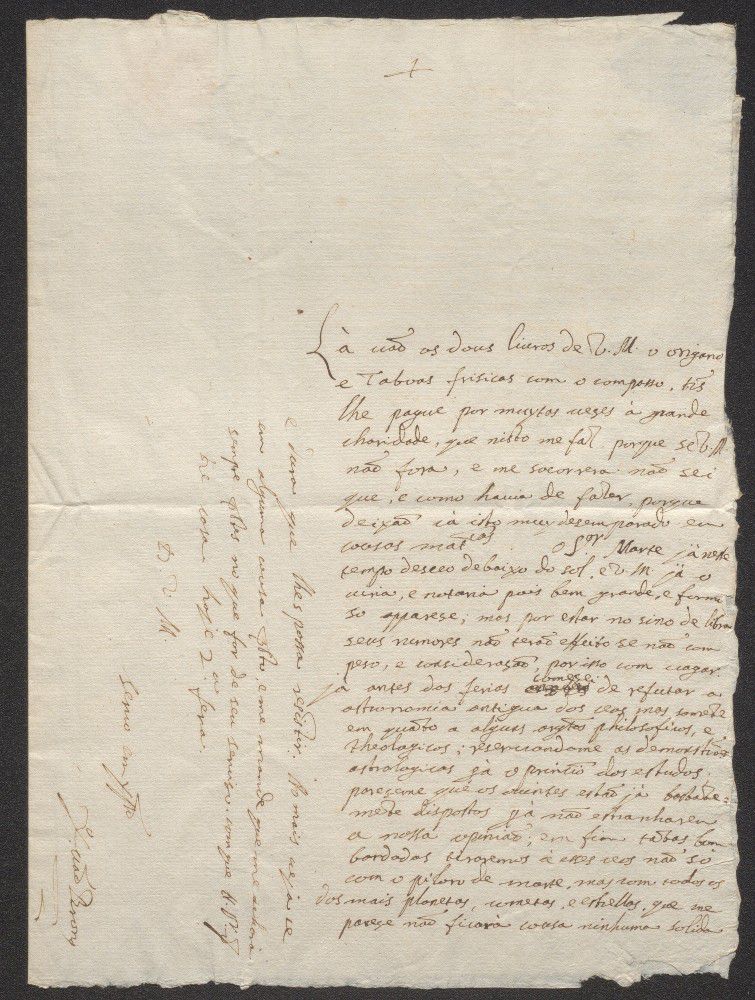 Là vaõ os dous livros de V. M. o origano
e Taboas frisicas com o compasso, Ds
lhe pague por muytas veses à grande
charidade, que nisto me faz porque se V. M
não fora, e me socorrera não sei
que, e como havia de fazer, porque
deixaõ cà isto muy desemparado em
cousas matcas. O Sor Marte já neste
tempo desceo debaixo do sol, e V. M. já o
viria, e notaria pois bem grande, e fermo
so apparese; mas por estar no sino de libra
seus rumores não terão effeito se não com
peso, e consideração, por isso com vagar.
já antes das ferias comesei de refutar a
astronomia antiqua dos ceos, mas somete
em quāto a algūs argtos philosoficos, e
theologicos; reservandome as demonstrõis
astrologicas pà o princió dos estudos.
pareseme que os ouvintes estaõ já bastāte=
mēte dispostos pà não estranharem
a nossa opiniaõ; em fim tabas bem
bordadas tiraremos a esses ceos não só
com o piloro de marte, mas com todos os
dos mais planetas, cometas, e estrellas, que me
parese não ficará cousa ninhuma solida
e dura que lhes possa resistir. No mais veja se
em alguma cousa psto, e me mande que me achará
sempre pstes no que for de seu serviso com que N. Sr.
hoje 2a fera.
D. V. M.
Servo em